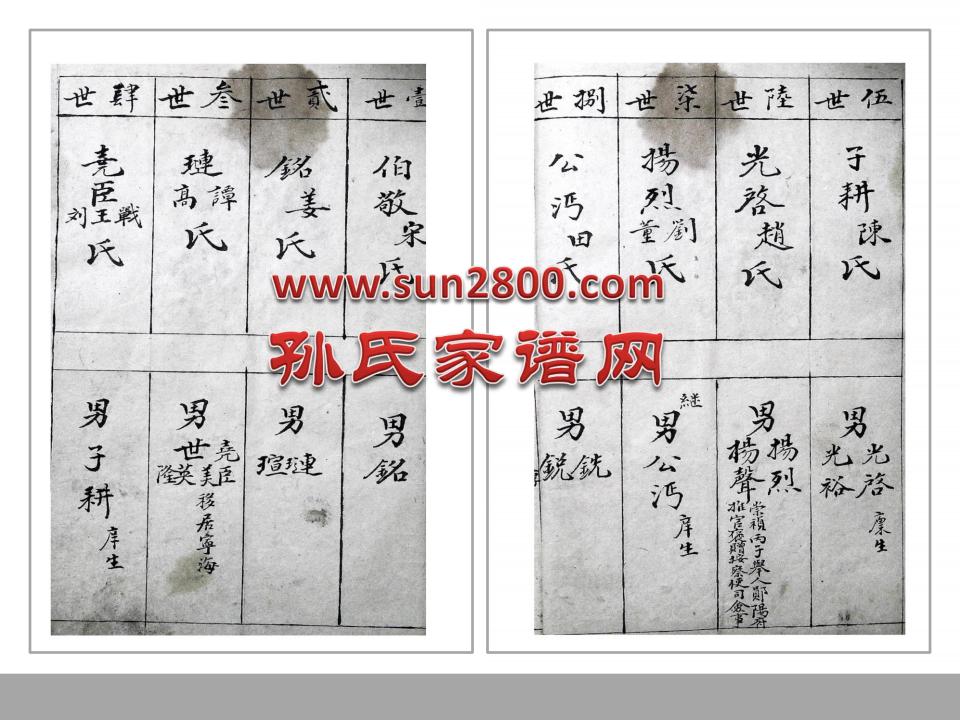 壹世
伯敬宋氏
男銘
貳世
銘姜氏
男
璉
瑄
叁世
璉譚高氏
男
堯臣
世美
英
隆
移居寧海
肆世
堯臣
戰王刘氏
男子耕
庠生
www.sun2800.com
孙氏家谱网
伍世
子耕陳氏
男
光啓
光裕
廩生
陸世
光啓趙氏
男
揚烈
揚聲
崇禎丙子舉人鄖陽府
推官
贈按察使司僉事
柒世
揚烈劉董氏
継
男公沔
庠生
捌世
公沔田氏
男
銑
鋭